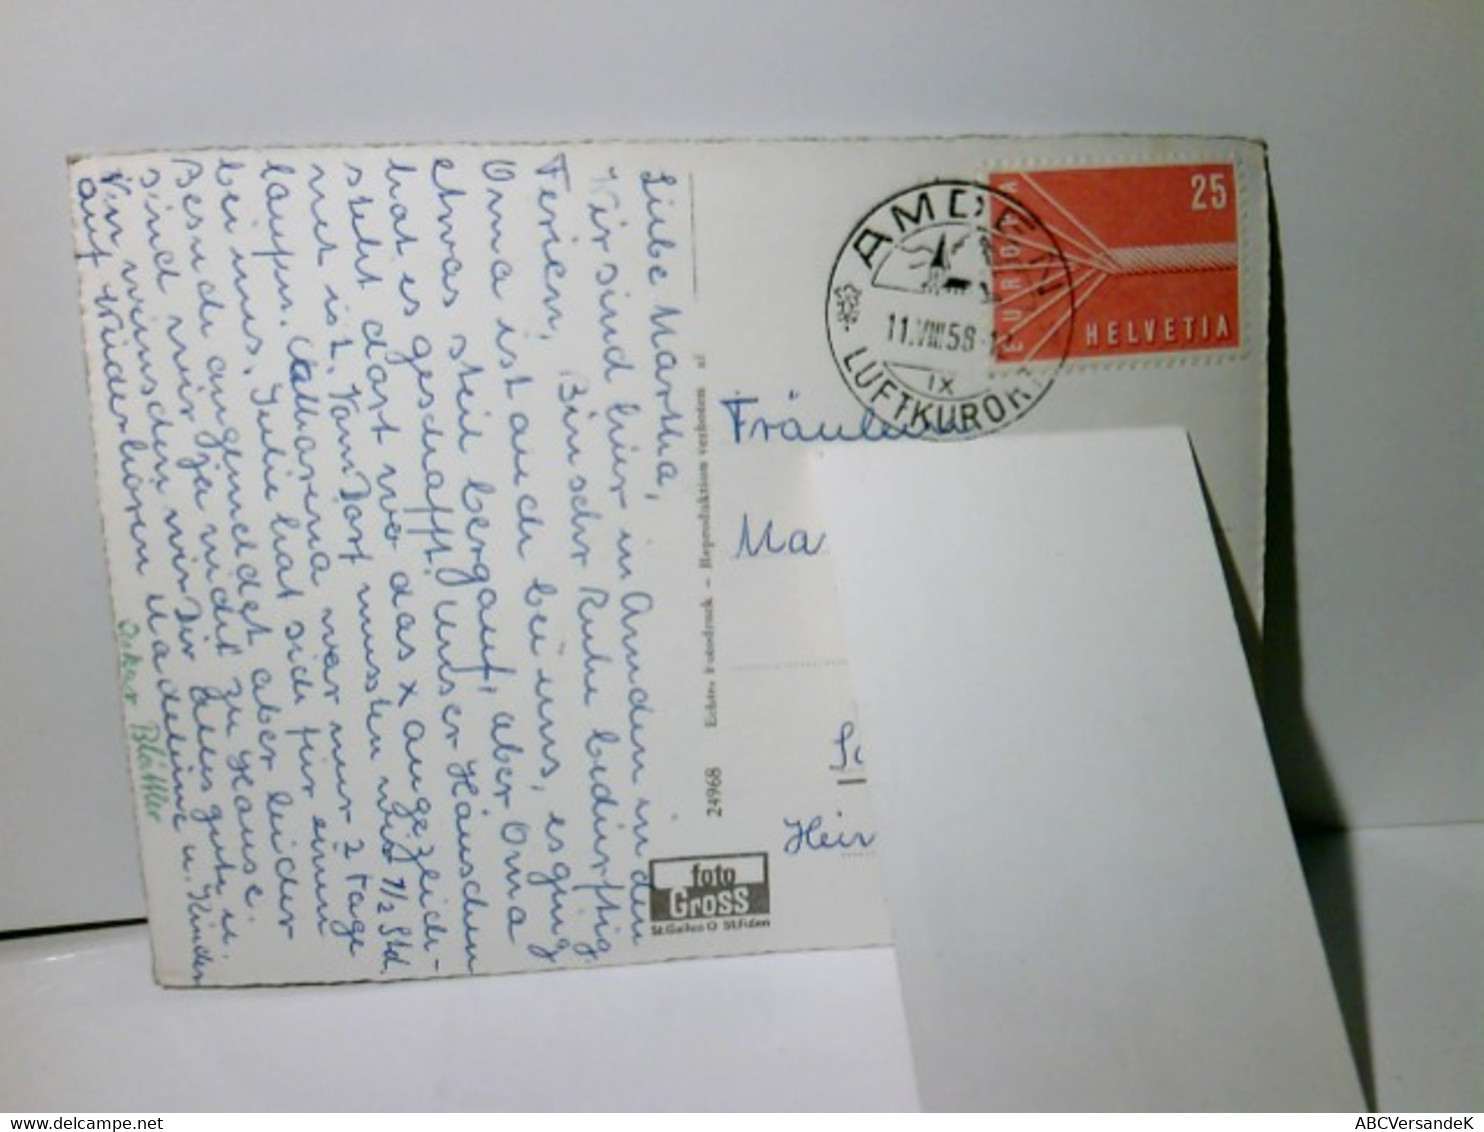 Liebe Martha,
Wir sind hier in Amden in den
Ferien, Bin sehr Ruhe bedürftig.
Oma ist auch bei uns, es ging
etwas steil bergauf, aber Oma
hat es geschafft. Unser Häuschen
steht dort wo das x angezeich-
net ist. Vom Dorf mussten wir 1/2 Std.
laufen. Catharina war nur 2 Tage
bei uns. Julie hat sich für einen
Besuch angemeldet, aber leider
sind wir ja nicht zu Hause.
Wir wünschen wir Dir alles gute u.
auf Wiederhören Madeleine u. Kinder
Oskar Blättler
24968 Echter Fotodruck – Reproduktion verboten
foto
Gross
St.Gallen O St.Fiden
AMDEN
11.VIII.58
IX
LUFTKURORT
EUROPA
25
HELVETIA
Fräulein
Ma
Hein
ABCVersandeK
www.delcampe.net